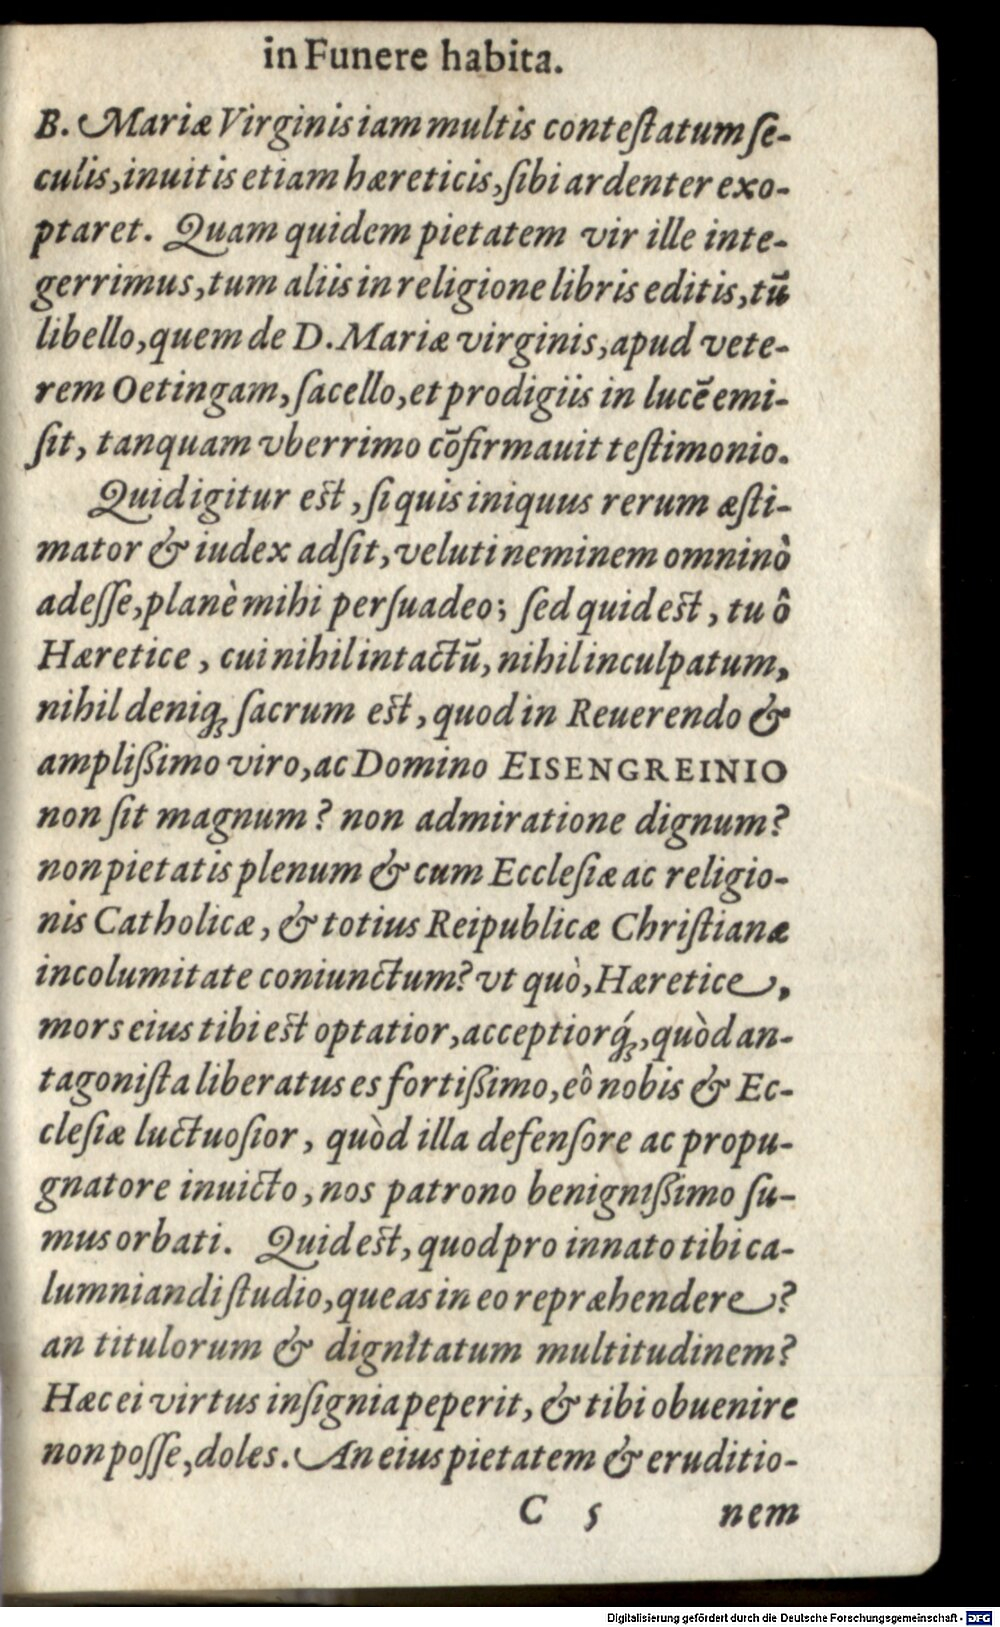 in Funere habita.
B. Mariæ Virginis iam multis conteſtatum ſe-
culis, inuitis etiam hæreticis, ſibi ardenter exo-
ptaret. Quam quidem pietatem vir ille inte-
gerrimus, tum aliis in religione libris editis, tū
libello, quem de D. Mariæ virginis, apud vete-
rem Oetingam, ſacello, et prodigiis in lucē emi-
ſit, tanquam vberrimo cōfirmauit teſtimonio.
Quid igitur eſt, ſi quis iniquus rerum æſti-
mator & iudex adſit, veluti neminem omninò
adeſſe, planè mihi perſuadeo; ſed quid eſt, tu ô
Hæretice, cui nihil intactū, nihil inculpatum,
nihil deniq; ſacrum eſt, quod in Reuerendo &
ampliſsimo viro, ac Domino EISENGREINIO
non ſit magnum? non admiratione dignum?
non pietatis plenum & cum Eccleſiæ ac religio-
nis Catholicæ, & totius Reipublicæ Chriſtianæ
incolumitate coniunctum? vt quò, Hæretice,
mors eius tibi eſt optatior, acceptiorq́;, quòd an-
tagoniſta liberatus es fortiſsimo, eô nobis & Ec-
cleſiæ luctuoſior, quòd illa defenſore ac propu-
gnatore inuicto, nos patrono benigniſsimo ſu-
mus orbati. Quid eſt, quod pro innato tibi ca-
lumniandi ſtudio, queas in eo repræhendere?
an titulorum & dignitatum multitudinem?
Hæc ei virtus inſignia peperit, & tibi obuenire
non poſſe, doles. An eius pietatem & eruditio-
C 5 nem
Digitalisierung gefördert durch die Deutsche Forschungsgemeinschaft - DFG